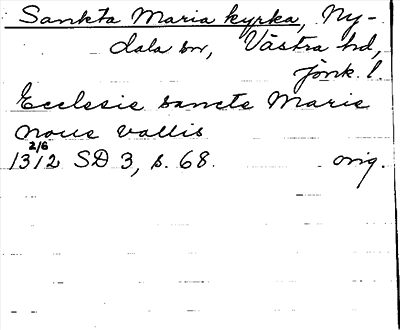 Sankta Maria kyrka, Ny-
dala sn, Västra hd,
jönk. l.
Ecclesie sancte Marie
Noue Vallis
2/6
1312 SD 3, s. 68. orig.